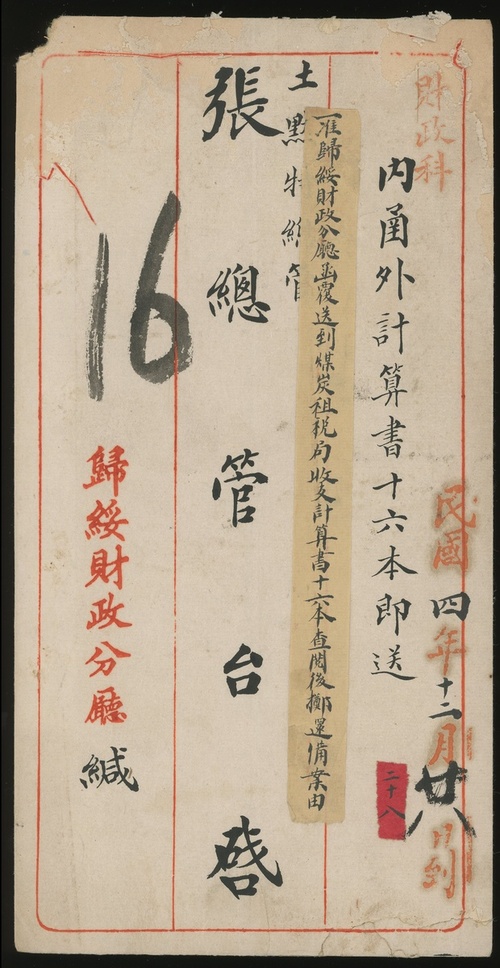 財政科
民國四年十二月廿八日到
內函外計算書十六本即送
二十八
一准歸綏財政分廳函覆送到煤炭租税局收支計算書十六本查閱後擲還備案由
土默特總管
張總管台啓
16
歸綏財政分廳緘